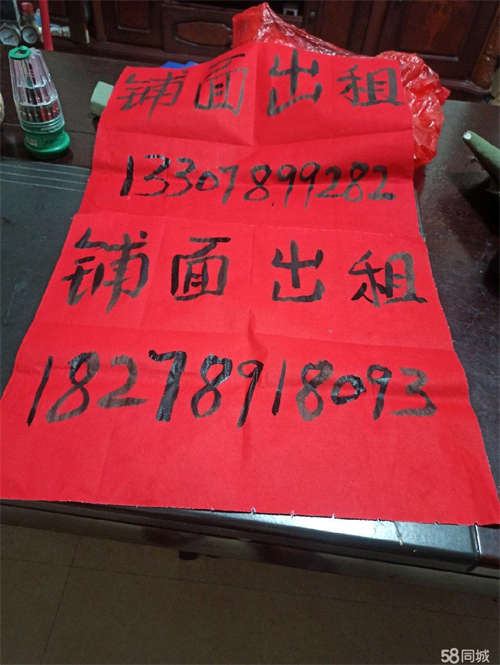 铺面出租
13307899282
铺面出租
18278918093
58同城